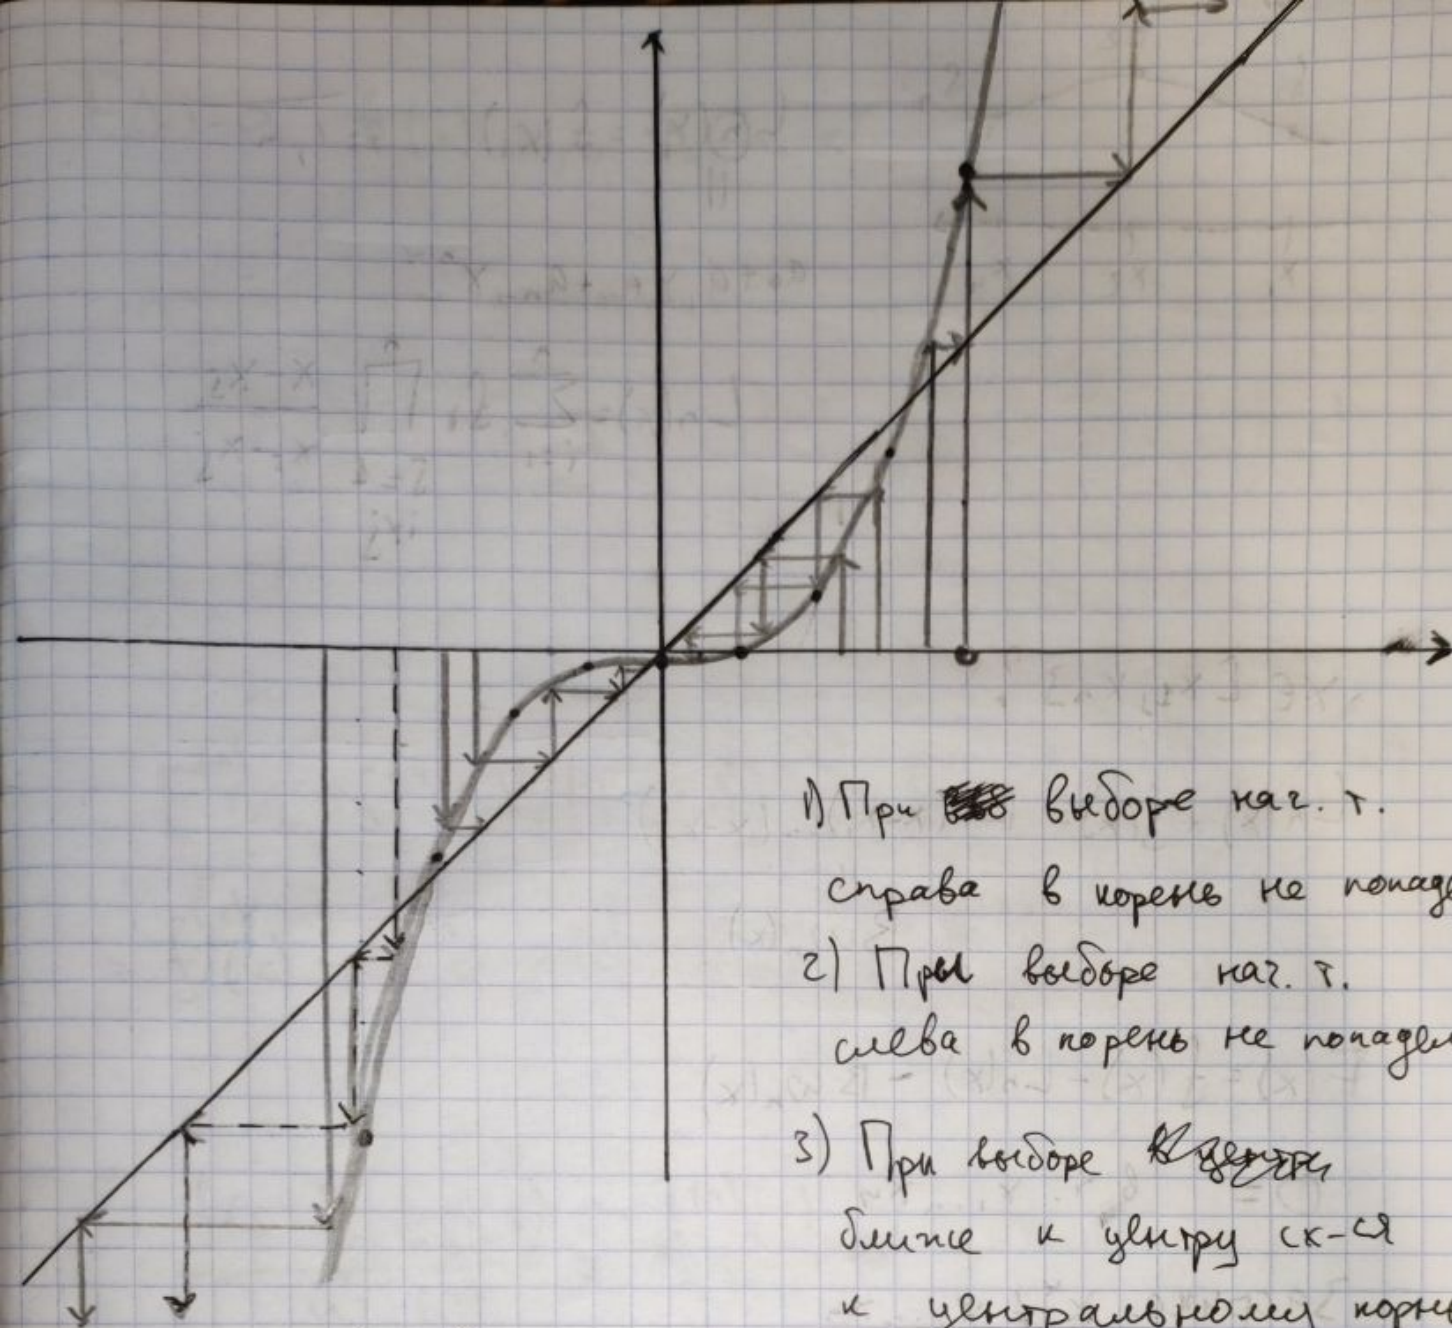 1) При выборе нач. т.
справа в корень не попаде
2) При выборе нач. т.
слева в корень не попадем
3) При выборе
ближе к центру сх-ся
к центральному корню